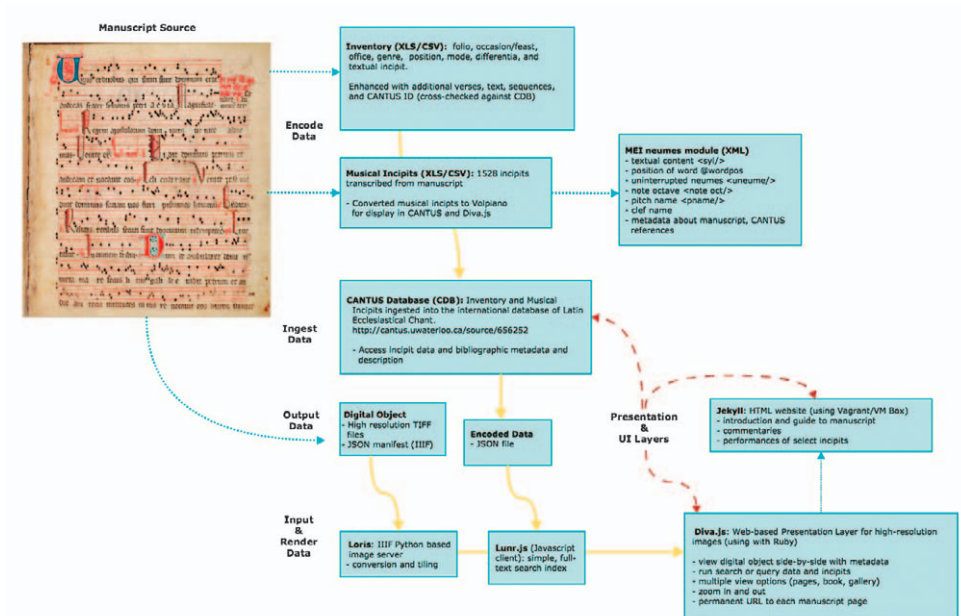 Manuscript Source
Inventory (XLS/CSV): folio, occasion/feast,
office, genre, position, mode, differentia, and
textual incipit.
Enhanced with additional verses, text, sequences,
and CANTUS ID (cross-checked against CDB)
Encode
Data
Musical Incipits (XLS/CSV): 1528 incipits
transcribed from manuscript
- Converted musical incipits to Volpiano
for display in CANTUS and Diva.js
MEI neumes module (XML)
- textual content <syl/>
- position of word @wordpos
- uninterrupted neumes <uneume/>
- note octave <note oct/>
- pitch name <pname/>
- clef name
- metadata about manuscript, CANTUS
references
CANTUS Database (CDB): Inventory and Musical
Incipits ingested into the international database of Latin
Ecclesiastical Chant.
http://cantus.uwaterloo.ca/source/656252
- Access incipit data and bibliographic metadata and
description
Ingest
Data
Output
Data
Digital Object
- High resolution TIFF
files
- JSON manifest (IIIF)
Encoded Data
- JSON file
Presentation
&
UI Layers
Jekyll: HTML website (using Vagrant/VM Box)
- introduction and guide to manuscript
- commentaries
- performances of select incipits
Input
&
Render
Data
Loris: IIIF Python based
image server
- conversion and tiling
Lunr.js (Javascript
client): simple, full-
text search index
Diva.js: Web-based Presentation Layer for high-resolution
images (using with Ruby)
- view digital object side-by-side with metadata
- run search or query data and incipits
- multiple view options (pages, book, gallery)
- zoom in and out
- permanent URL to each manuscript page